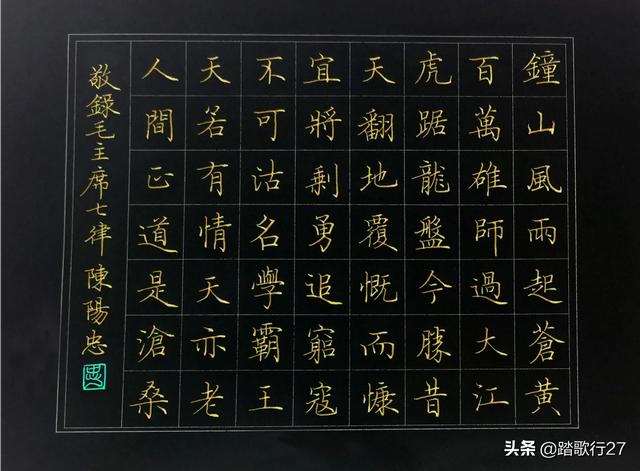 鐘山風雨起蒼黃
百萬雄師過大江
虎踞龍盤今勝昔
天翻地覆慨而慷
宜將剩勇追窮寇
不可沽名學霸王
天若有情天亦老
人間正道是滄桑
敬錄毛主席七律 陳陽忠
头条 @踏歌行27